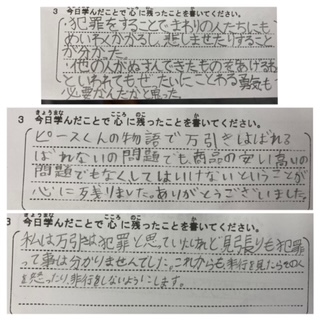 3 今日学んだことで心に残ったことを書いてください。
・犯罪をすることで、まわりの人たちにも
めいわくがかかるし、悲しませたりすること
が分かった。
・他の人がぬすんできたものをあげる
といわれてもぜったいにことわる勇気も
必要なんだと思った。
きょうまな こころ のこ か
3 今日学んだことで心に残ったことを書いてください。
ピースくんの物語で万引きはばれる
ばれないの問題でも商品の安い高いの
問題でもなくしてはいけないということが
心に残りました。ありがとうございました。
きょうまな こころ のこ か
3 今日学んだことで心に残ったことを書いてください。
私は万引は犯罪と思っていたけれど見張りも犯罪
って事は分かりませんでした。これからも非行を見たらその人
を怒ったり、非行をしないようにします。